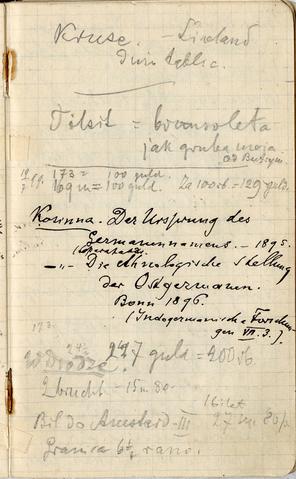 Kruse. – Liwland
dwie tablic.
Tilsit = bransoleta
jak gruba moja
od Buszyn.
173 = 100 guld.
169 m = 100 guld. Za 100 rb. = 129 guld.
Kosinna. Der Ursprung des
Germanennamens. – 1895.
–„– Die ethnologische Stellung
der Ostgermanen.
Bonn 1896.
(Indogermanische Forschun
gen VII. 3.)
247 guld = 200 rb
2 brucht – 15 m 80.
16 let
Bil do Amsterd – III 27 m 80 p
Granica 6½ rano.